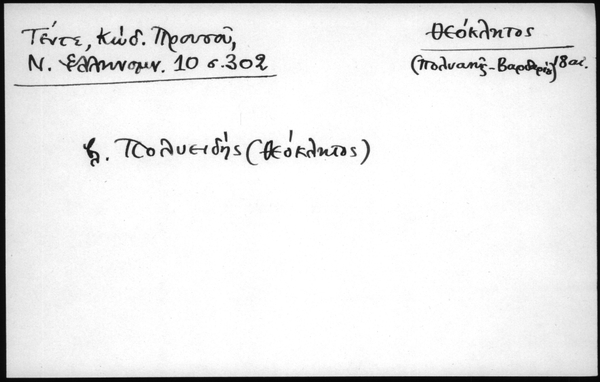 Τέντε, Κώδ. Προυσοῦ,
Ν. Ἑλληνομν. 10 σ. 302
Θεόκλητος
(Πολυανῆς - Βαρδαριῶν) 18 αἰ.
βλ. Πολυειδής (Θεόκλητος)